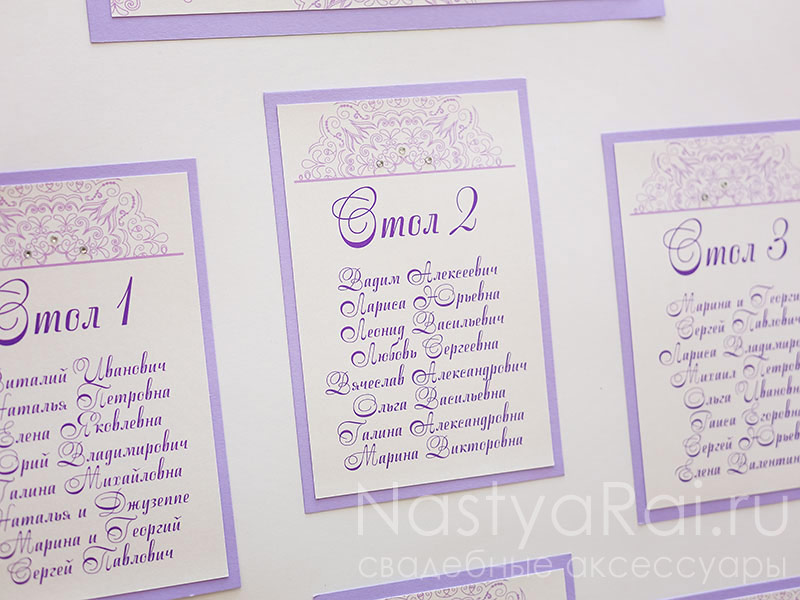 Стол 1
Виталий Иванович
Наталья Петровна
Елена Яковлевна
Юрий Владимирович
Галина Михайловна
Наталья и Джузеппе
Марина и Георгий
Сергей Павлович
Стол 2
Вадим Алексеевич
Лариса Юрьевна
Леонид Васильевич
Любовь Сергеевна
Вячеслав Александрович
Ольга Васильевна
Галина Александровна
Марина Викторовна
Стол 3
Марина и Георги
Сергей Павлович
Лариса Владимиро
Михаил Петрови
Ольга Ивановн
Таиса Егоровн
Сергей Юрьев
Елена Валентин
NastyaRai.ru
свадебные аксессуары